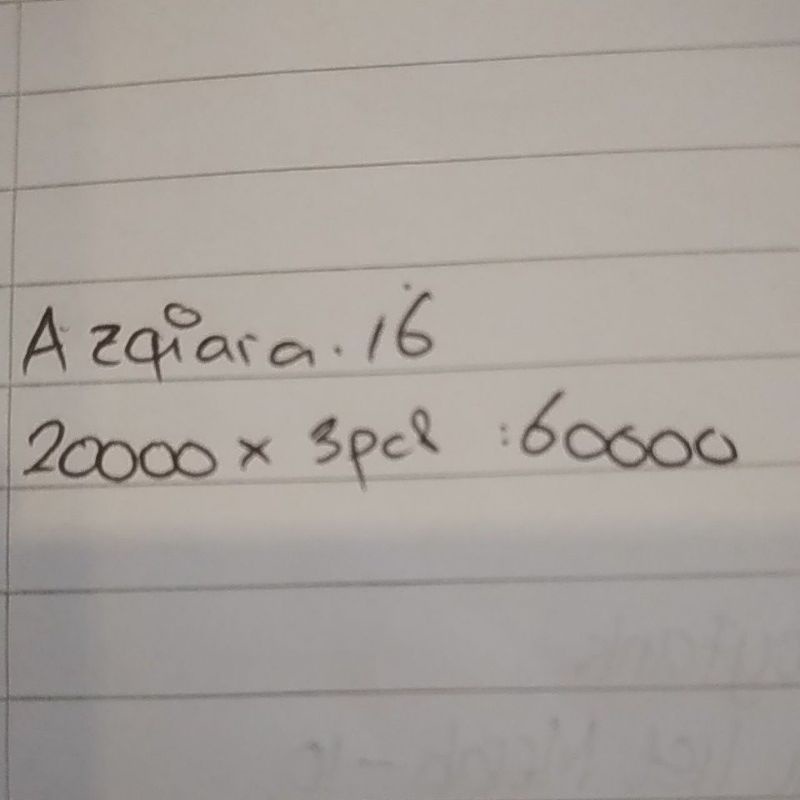 Azqiara. 16
20000 x 3pcs :60000